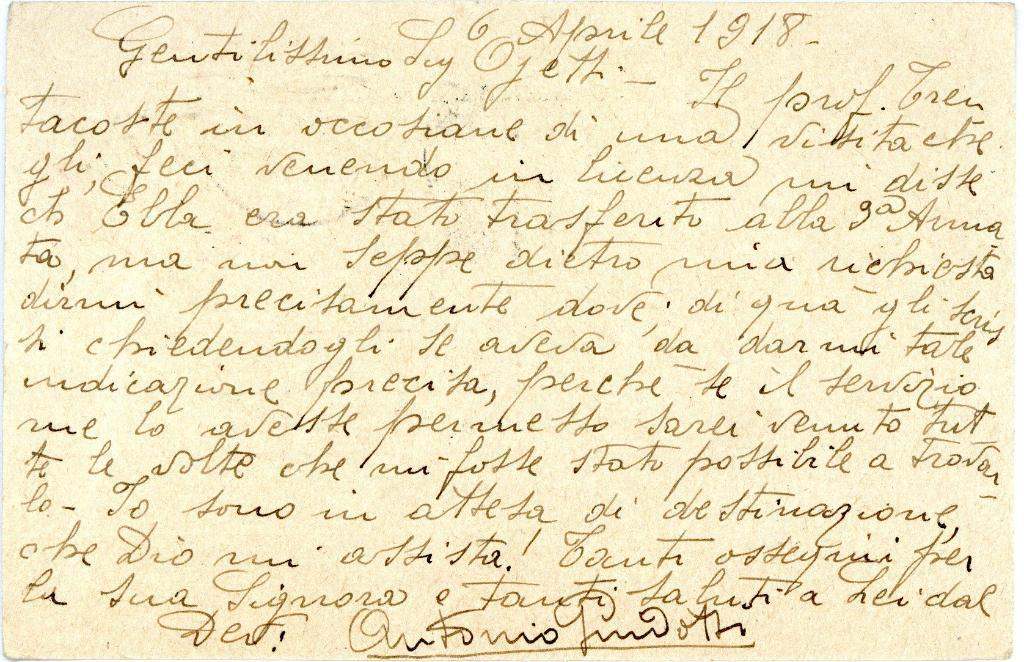 6 Aprile 1918-
Gentilissimo Sig Ojetti - Il prof. Tren
tacoste in occosione di una visita che
gli feci venendo in licenza mi disse
ch Ella era stato trasferito alla 3a Arma
ta, ma non seppe dietro mia richiesta
dirmi precisamente dove; di qua gli scris
si chiedendogli se aveva da darmi tale
indicazione precisa, perchè se il servizio
me lo avesse permesso sarei venuto tut
te le volte che mi fosse stato possibile a trovar-
lo- Io sono in attesa di destinazione,
che Dio mi assista! Tanti ossequi per
la sua Signora e tanti saluti a Lei dal
Dev: Antonio